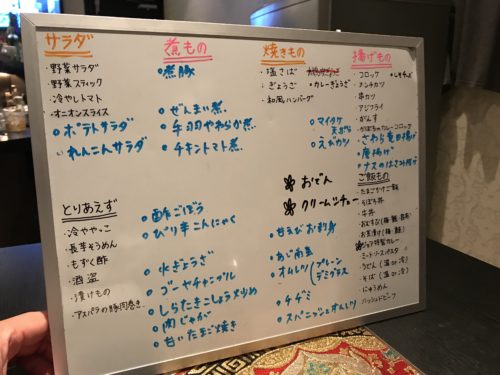 サラダ
・野菜サラダ
・野菜スティック
・冷やしトマト
・オニオンスライス
ポテトサラダ
れんこんサラダ
煮もの
煮豚
ぜんまい煮
手羽やわらか煮
チキントマト煮
焼きもの
・塩さば
・ぎょうざ
・カレーぎょうざ
・和風ハンバーグ
マイタケ天ぷら
えびカツ
揚げもの
・コロッケ
・メンチカツ
・串カツ
・アジフライ
・がんす
・かぼちゃカレーコロッケ
さわら竜田揚げ
唐揚げ
ナスのはさみ揚げ
とりあえず
・冷ややっこ
・長芋そうめん
・もずく酢
・酒盗
・漬けもの
・アスパラの豚肉巻き
酢ごぼう
ぴり辛こんにゃく
水ぎょうざ
ゴーヤチャンプル
しらたきこしょう炒め
肉じゃが
甘いたまご焼き
おでん
クリームシチュー
甘えびお刺身
オムレツ(プレーン デミグラス)
チヂミ
スパニッシュオムレツ
ご飯もの
・たまごかけご飯
・そぼろ丼
・牛丼
・お茶漬け
特製カレー
・ミートソースパスタ
・うどん(温or冷)
・そば(温or冷)
・にゅうめん
・ハッシュドビーフ